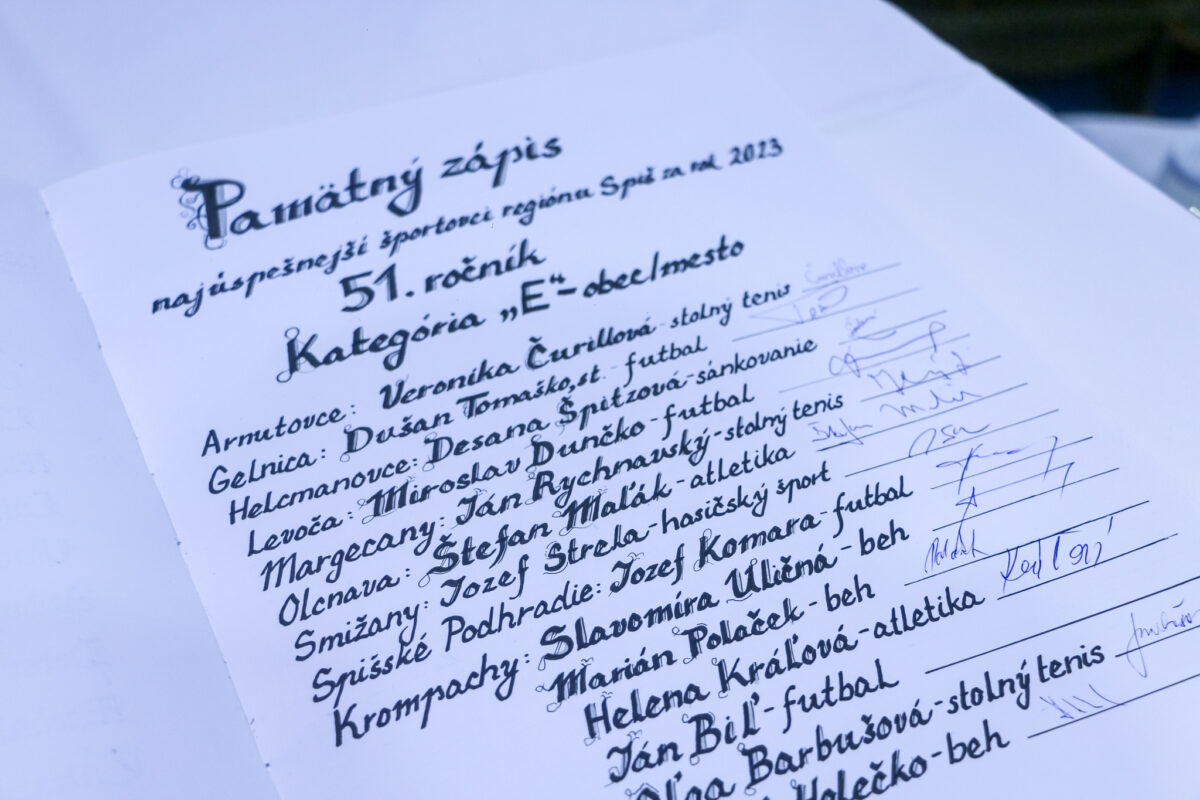 Pamätný zápis
najúspešnejší športovci regiónu Spiš za rok 2023
51. ročník
Kategória „E“-obec/mesto
Arnutovce: Veronika Čurillová-stolný tenis
Gelnica: Dušan Tomaško,st. - futbal
Helcmanovce: Desana Špitzová-sánkovanie
Levoča: Miroslav Dunčko-futbal
Margecany: Ján Rychnavský-stolný tenis
Olcnava: Štefan Maľák-atletika
Smižany: Jozef Strela-hasičský šport
Spišské Podhradie: Jozef Komara-futbal
Krompachy: Slavomíra Uličná-beh
Marián Polaček-beh
Helena Kráľová-atletika
Ján Biľ-futbal
Oľga Barbušová-stolný tenis
Holečko-beh